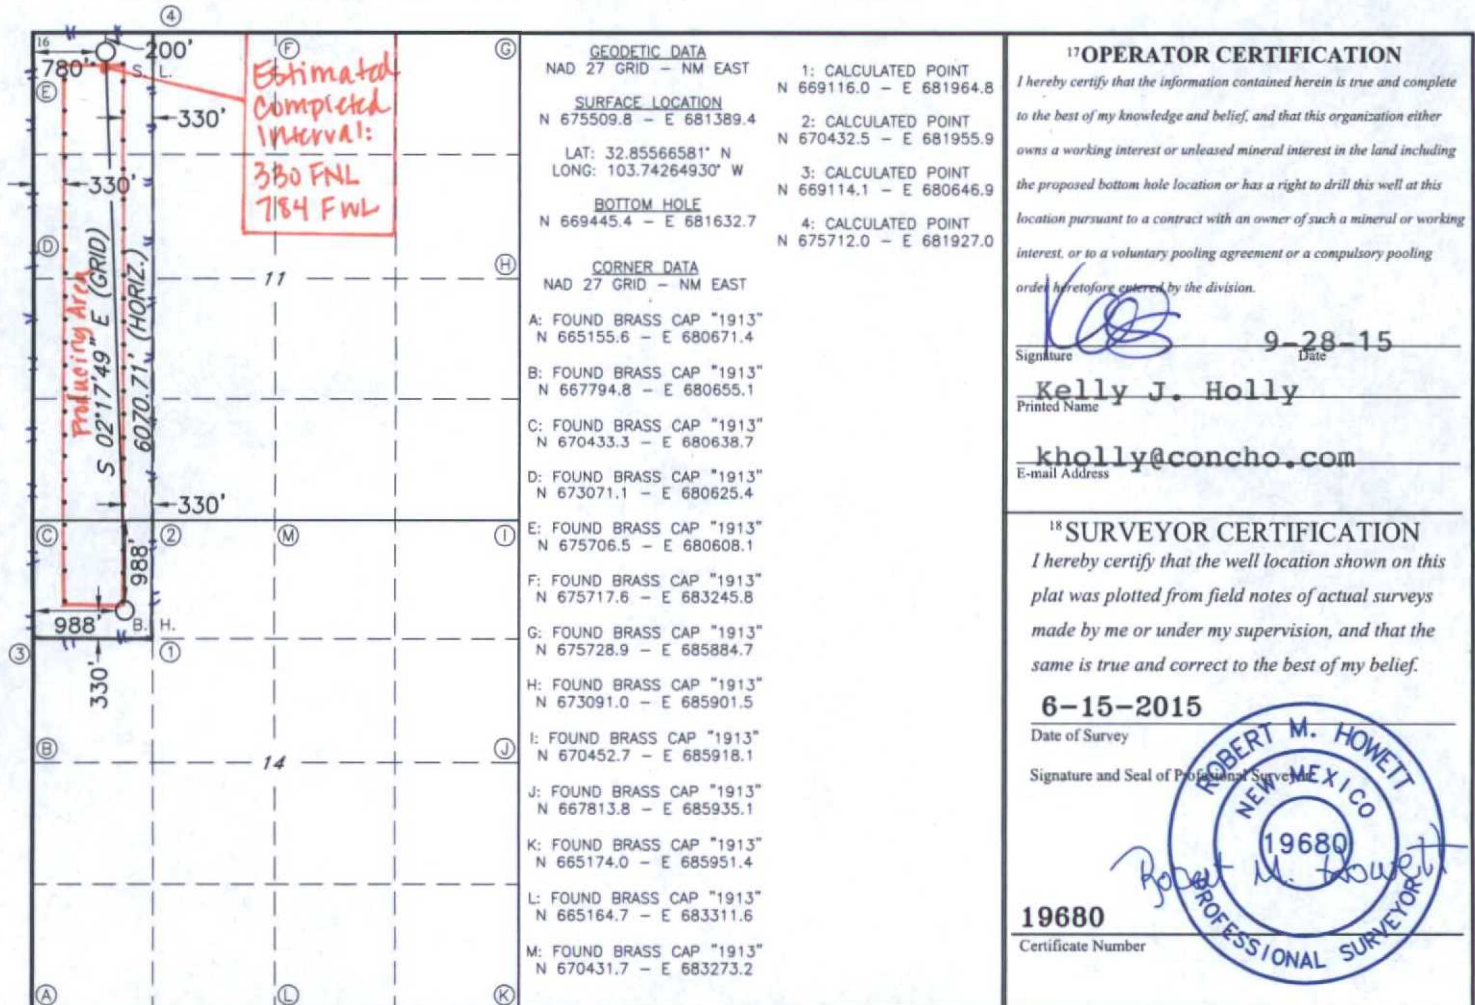 ④
16
200'
780'
S. L.
Ⓔ
Ⓕ
Ⓖ
Estimated
Completed
Interval:
330 FNL
784 FWL
330'
330'
Ⓓ
Producing Area
S 02°17'49" E (GRID)
6070.71' (HORIZ.)
11
Ⓗ
330'
Ⓒ
②
Ⓜ
Ⓘ
988'
988'
B. H.
③
①
330'
Ⓑ
14
Ⓙ
Ⓐ
Ⓛ
Ⓚ
GEODETIC DATA
NAD 27 GRID - NM EAST
SURFACE LOCATION
N 675509.8 - E 681389.4
LAT: 32.85566581° N
LONG: 103.74264930° W
BOTTOM HOLE
N 669445.4 - E 681632.7
CORNER DATA
NAD 27 GRID - NM EAST
A: FOUND BRASS CAP "1913"
N 665155.6 - E 680671.4
B: FOUND BRASS CAP "1913"
N 667794.8 - E 680655.1
C: FOUND BRASS CAP "1913"
N 670433.3 - E 680638.7
D: FOUND BRASS CAP "1913"
N 673071.1 - E 680625.4
E: FOUND BRASS CAP "1913"
N 675706.5 - E 680608.1
F: FOUND BRASS CAP "1913"
N 675717.6 - E 683245.8
G: FOUND BRASS CAP "1913"
N 675728.9 - E 685884.7
H: FOUND BRASS CAP "1913"
N 673091.0 - E 685901.5
I: FOUND BRASS CAP "1913"
N 670452.7 - E 685918.1
J: FOUND BRASS CAP "1913"
N 667813.8 - E 685935.1
K: FOUND BRASS CAP "1913"
N 665174.0 - E 685951.4
L: FOUND BRASS CAP "1913"
N 665164.7 - E 683311.6
M: FOUND BRASS CAP "1913"
N 670431.7 - E 683273.2
1: CALCULATED POINT
N 669116.0 - E 681964.8
2: CALCULATED POINT
N 670432.5 - E 681955.9
3: CALCULATED POINT
N 669114.1 - E 680646.9
4: CALCULATED POINT
N 675712.0 - E 681927.0
17 OPERATOR CERTIFICATION
I hereby certify that the information contained herein is true and complete
to the best of my knowledge and belief, and that this organization either
owns a working interest or unleased mineral interest in the land including
the proposed bottom hole location or has a right to drill this well at this
location pursuant to a contract with an owner of such a mineral or working
interest, or to a voluntary pooling agreement or a compulsory pooling
order heretofore entered by the division.
9-28-15
Signature Date
Kelly J. Holly
Printed Name
kholly@concho.com
E-mail Address
18 SURVEYOR CERTIFICATION
I hereby certify that the well location shown on this
plat was plotted from field notes of actual surveys
made by me or under my supervision, and that the
same is true and correct to the best of my belief.
6-15-2015
Date of Survey
Signature and Seal of Professional Surveyor:
ROBERT M. HOWETT
NEW MEXICO
19680
Robert M. Howett
PROFESSIONAL SURVEYOR
19680
Certificate Number